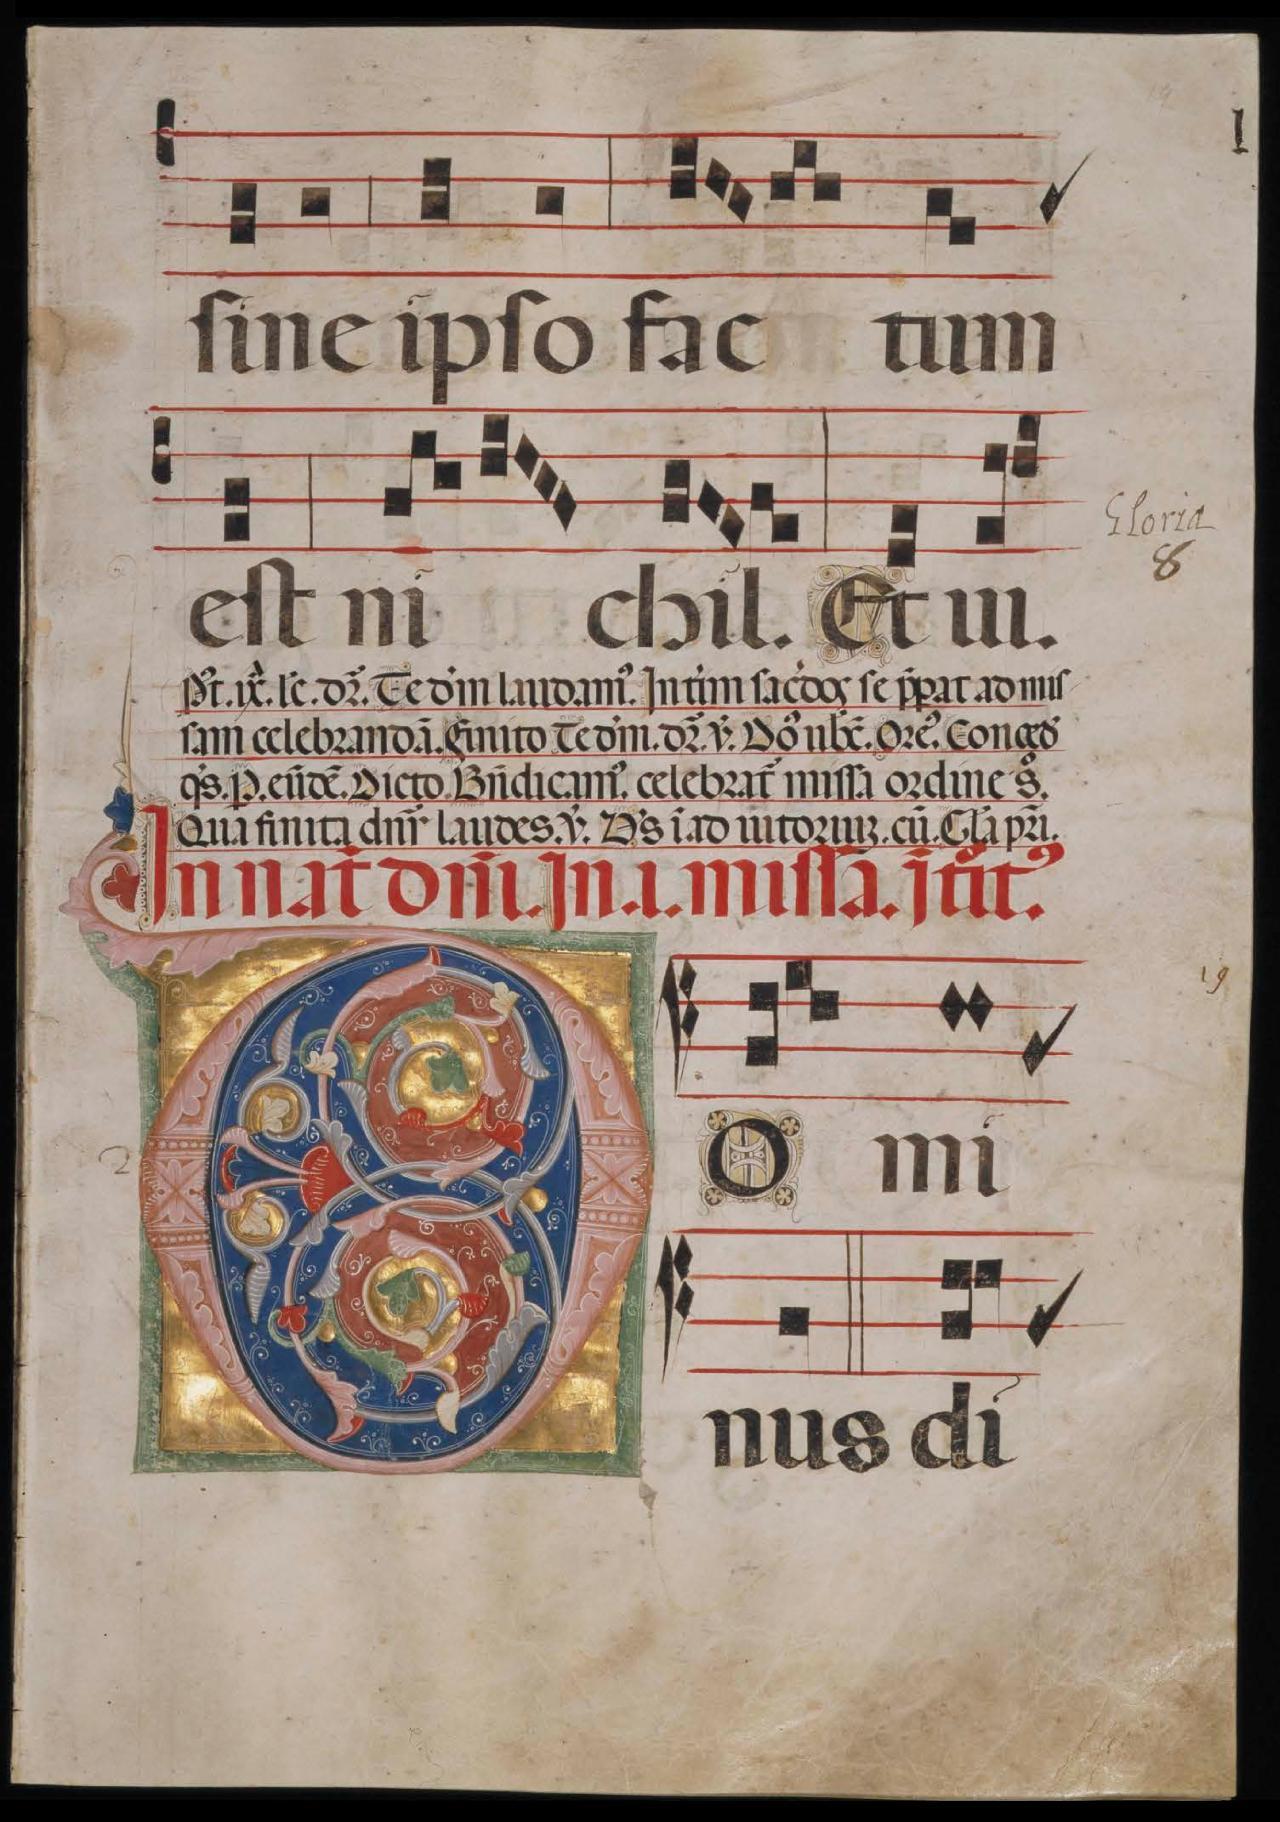 l
sine ipso fac tum
est ni chil. Et ui.
Gloria
8
Pt. ix. lc. dr. Te dm laudam. Interim sacdos se pparat ad mis
sam celebrandā. Finito Te dm. dr. v. Dō ub̄c. Ore. Conced
qs. p. eūdē. Dicto Bndicam, celebrat missa ordine s.
Qua finita dnr laudes. v. Ds ī adiutorium. cū. Glā pri.
In nat dm̄i. In .i. missa. Itrit.
19
D O mi
2
nus di